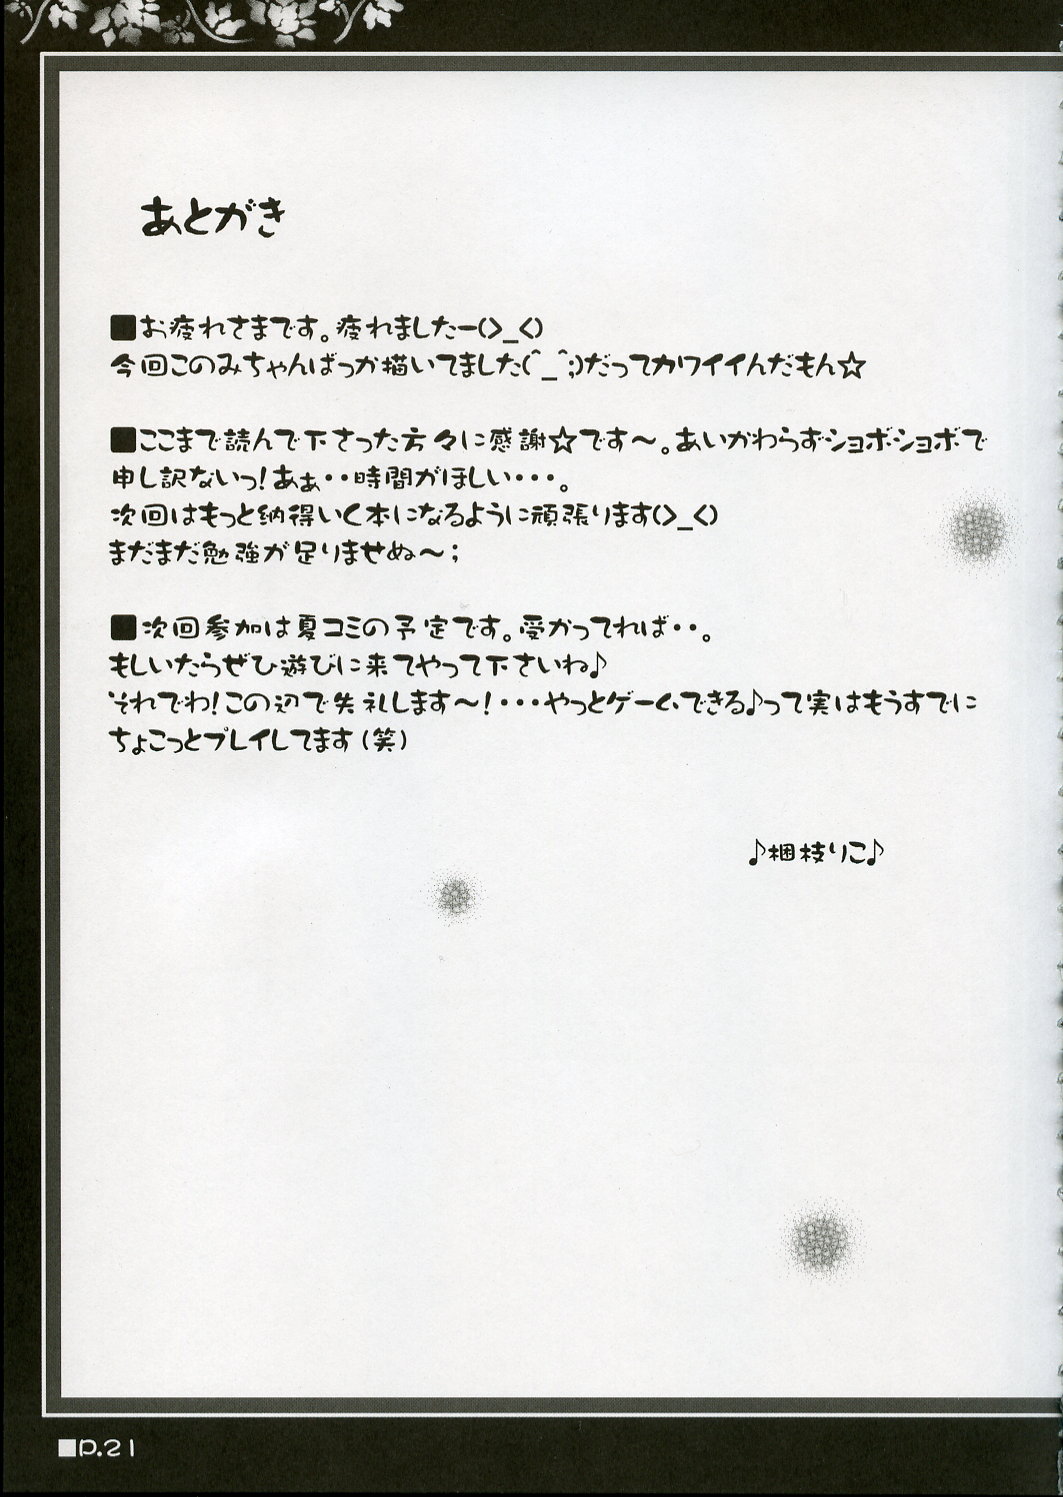 あとがき
■お疲れさまです。疲れましたー(>_<)
今回このみちゃんばっか描いてました(^_^;)だってカワイイんだもん☆
■ここまで読んで下さった方々に感謝☆です～。あいかわらずショボショボで
申し訳ないっ!あぁ・・時間がほしい・・・。
次回はもっと納得いく本になるように頑張ります(>_<)
まだまだ勉強が足りませぬ～;
■次回参加は夏コミの予定です。受かってれば・・。
もしいたらぜひ遊びに来てやって下さいね♪
それでわ!この辺で失礼します～!・・・やっとゲームできる♪って実はもうすでに
ちょこっとプレイしてます(笑)
♪梱枝りこ♪
■P.21